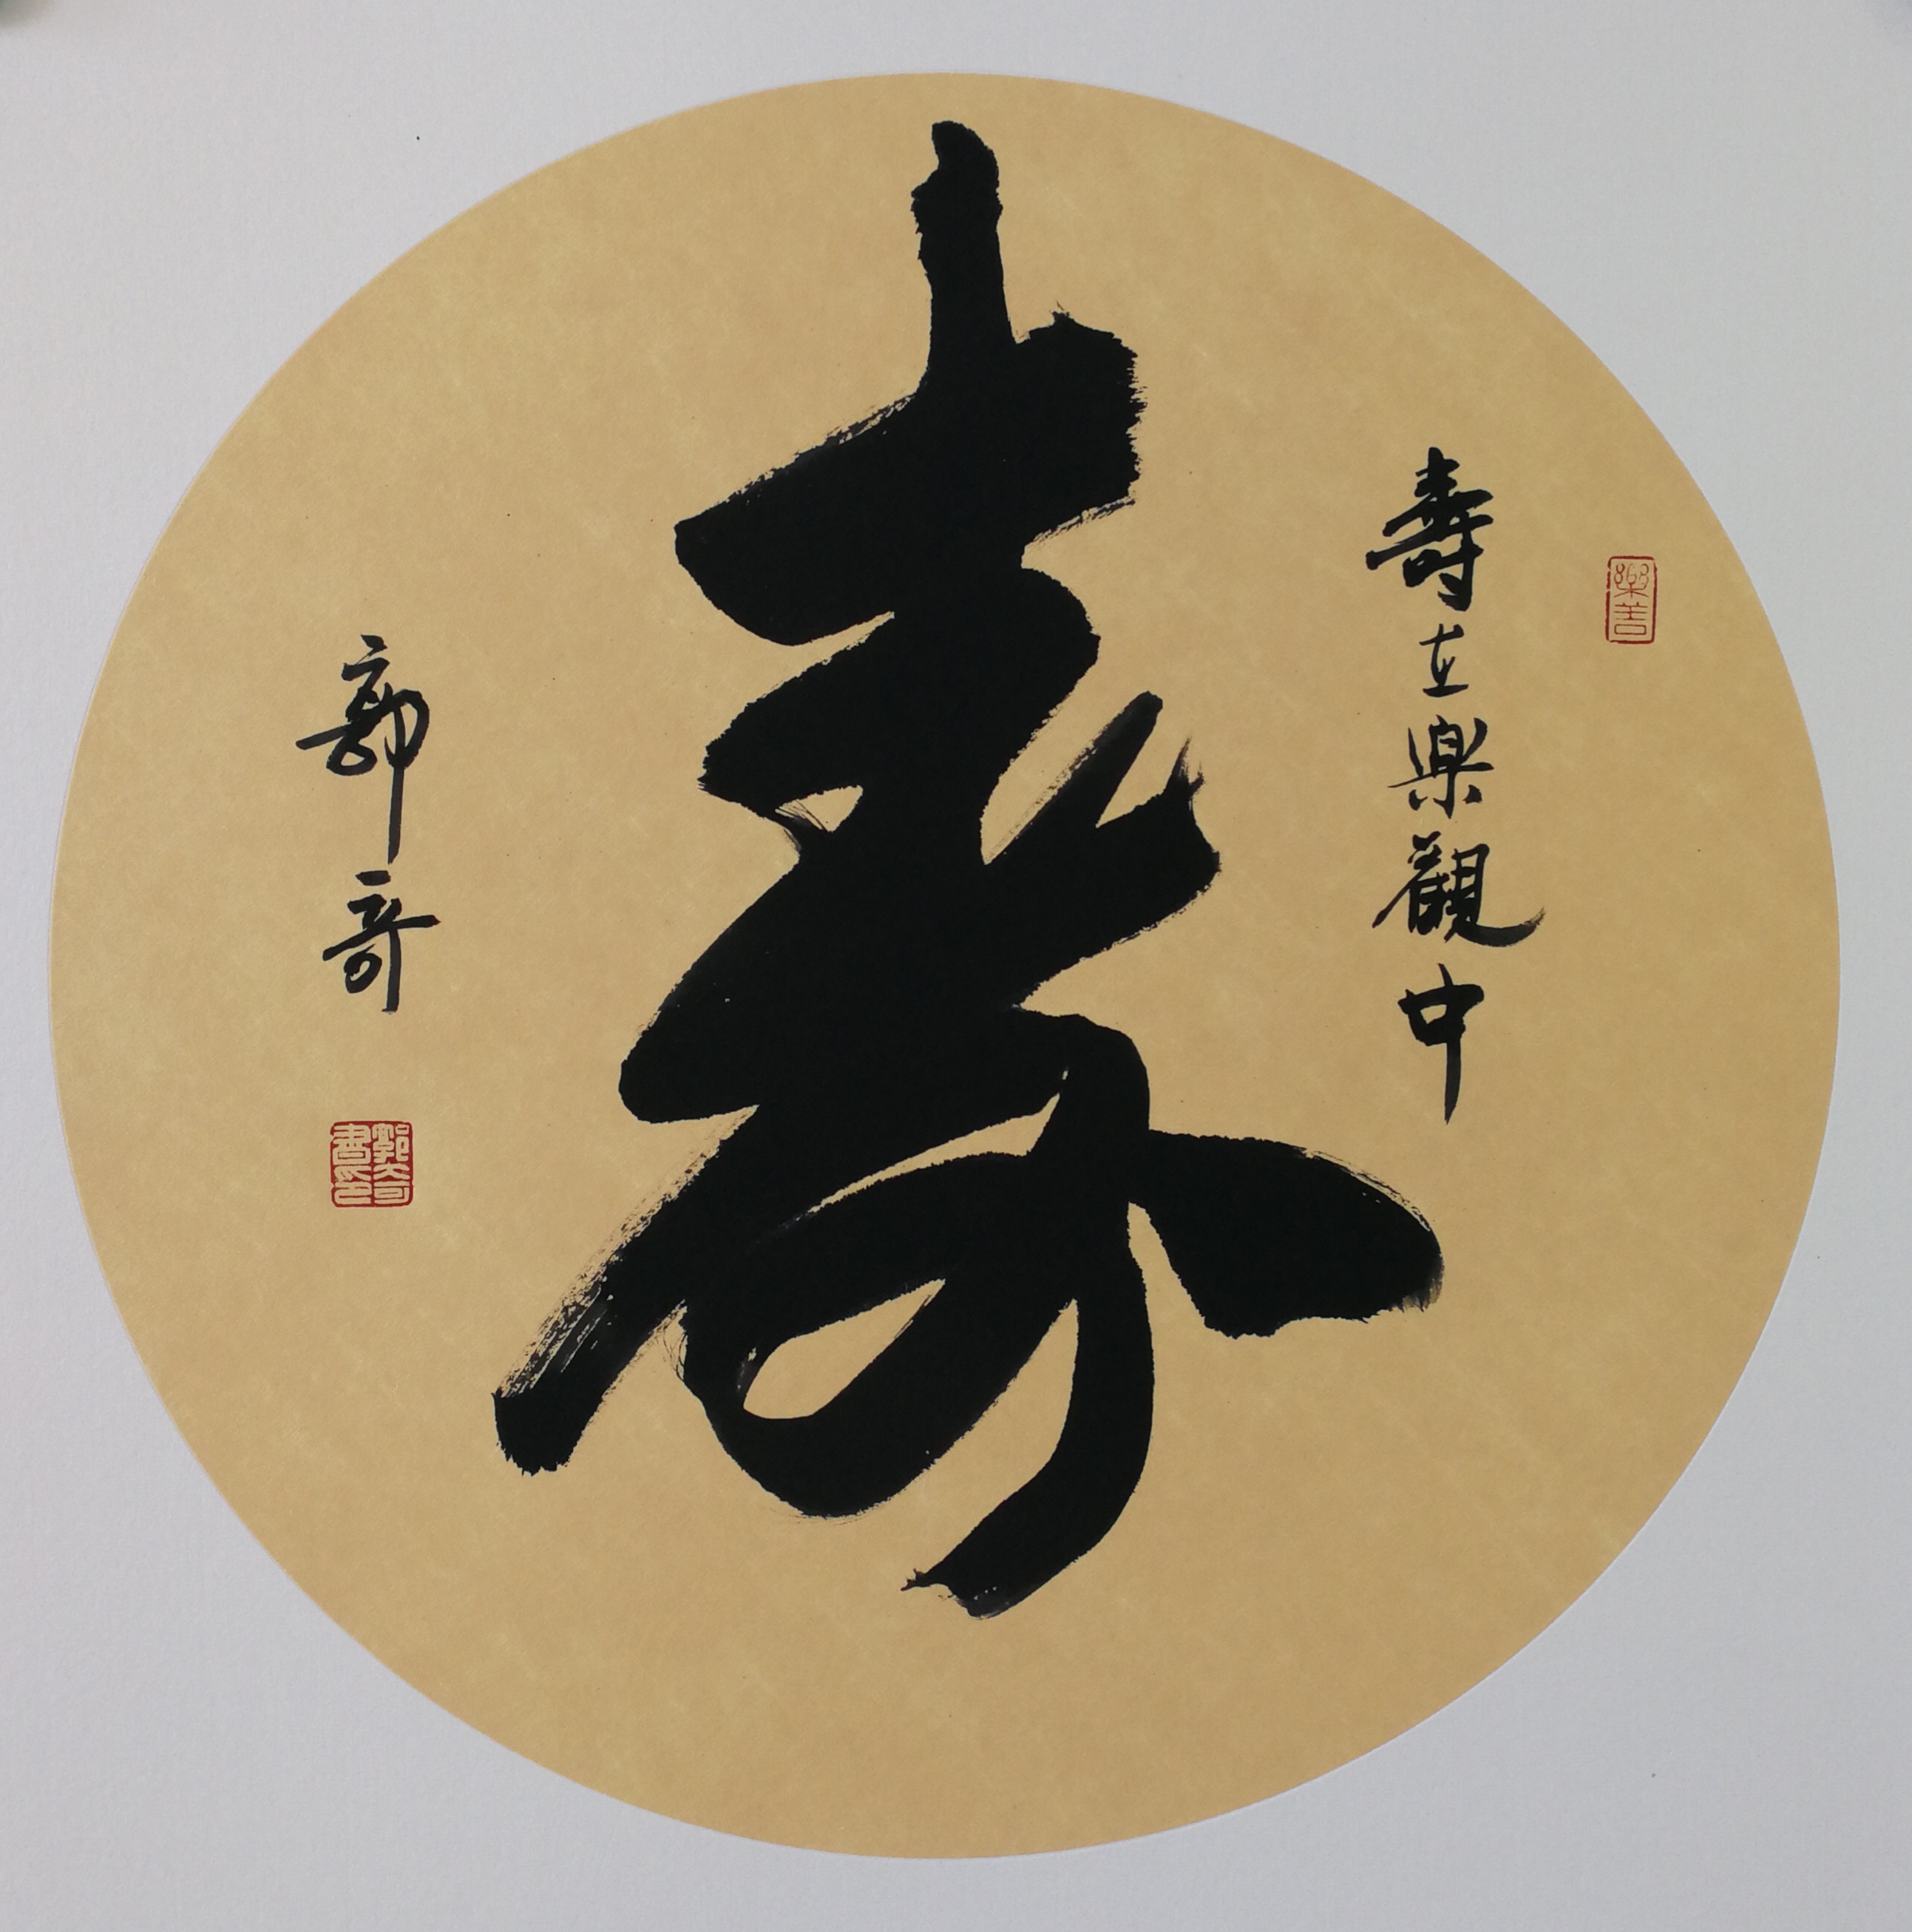 樂善
壽在樂觀中
寿
郭奇
郭奇書印